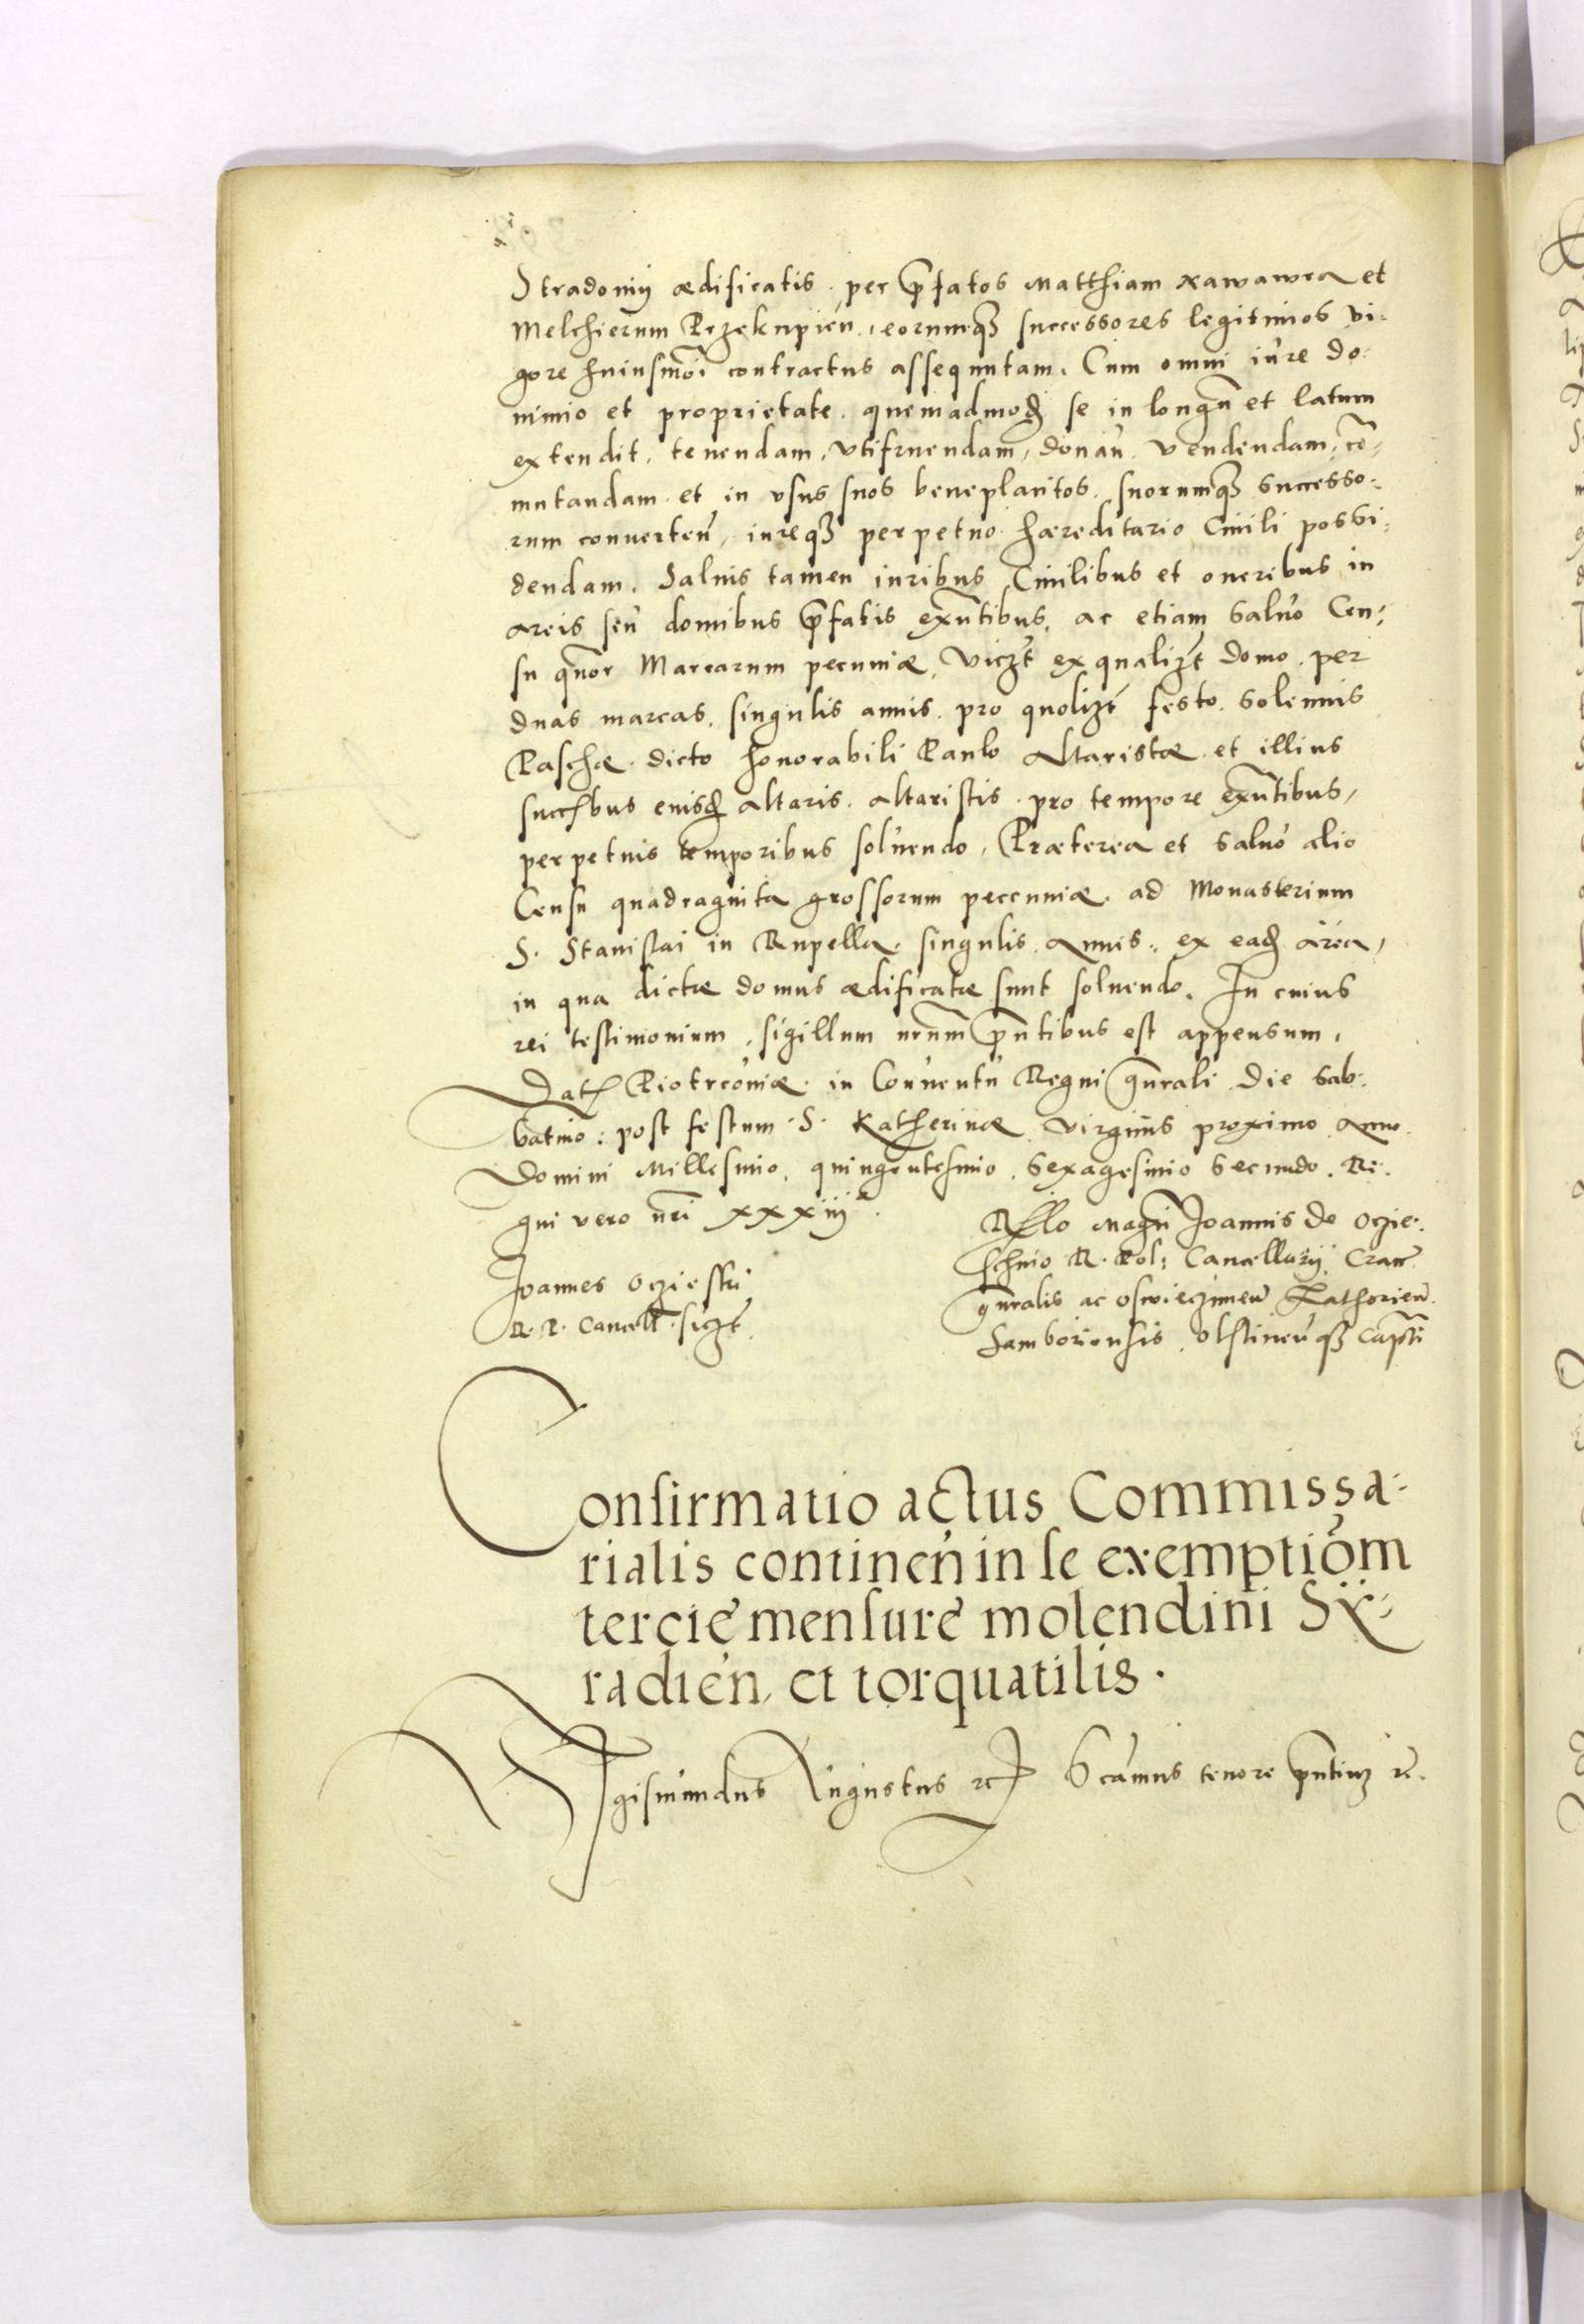 Stradomij ædificatis. per p̄fatos Matthiam xawawra et
Melchierum Przekupień, eorumqȝ successores legitimos vi-
gore huiusmōi contractus assequutam. Cum omni iure do-
minio et proprietate. quemadmodȝ se in longū et latum
extendit, tenendam, vtifruendam, donań. vendendam, cō-
mutandam. et in vsus suos beneplacitos, suorumqȝ successo-
rum conuerteń, iureqȝ perpetuo hæreditario Ciuili possi-
dendam. Saluis tamen iuribus Ciuilibus et oneribus in
areis seu domibus p̄fatis exn̄tibus, ac etiam saluo Cen-
su quor̄ Marcarum pecuniæ, viczt ex qualizt domo. per
duas marcas. singulis annis. pro quolizt festo. solennis
Paschæ. dicto honorabili Paulo Altaristæ et illius
succ̄bus eiusdȝ altaris. altaristis. pro tempore exn̄tibus,
perpetuis temporibus soluendo. Præterea et saluo alio
Censu quadraginta grossorum peccuniæ. ad Monasterium
S. Stanislai in Rupella. singulis Annis. ex eadȝ Area,
in qua dictæ domus ædificatæ sunt soluendo. In cuius
rei testimonium, sigillum nr̄um p̄ntibus est appensum.
Dat̄ Piotrcouiæ. in Conuentu Regni gn̄rali Die Sab-
batino: post festum. S. Katherinæ virginis proximo Anno
Domini Millesimo, quingentesimo, Sexagesimo Secundo. Re-
gni vero nr̄i xxxiijº.
Joannes Oczieski
R. P. Cancell. sszt
Rello Magn̄i Joannis de Oczie-
schino R. Pol: Cancellarij, Crac̄
gn̄ralis ac Oswieczimeń Zathorień.
Samboriensis, Olstineń qȝ Capt̄i
Confirmatio actus Commissa-
rialis continen̄ in se exemptiōm
tercie mensure molendini Sy-
radień, et torquatilis.
Sigismundus Augustus rc̄ Scāmus tenore pn̄tiuȝ rc̄.